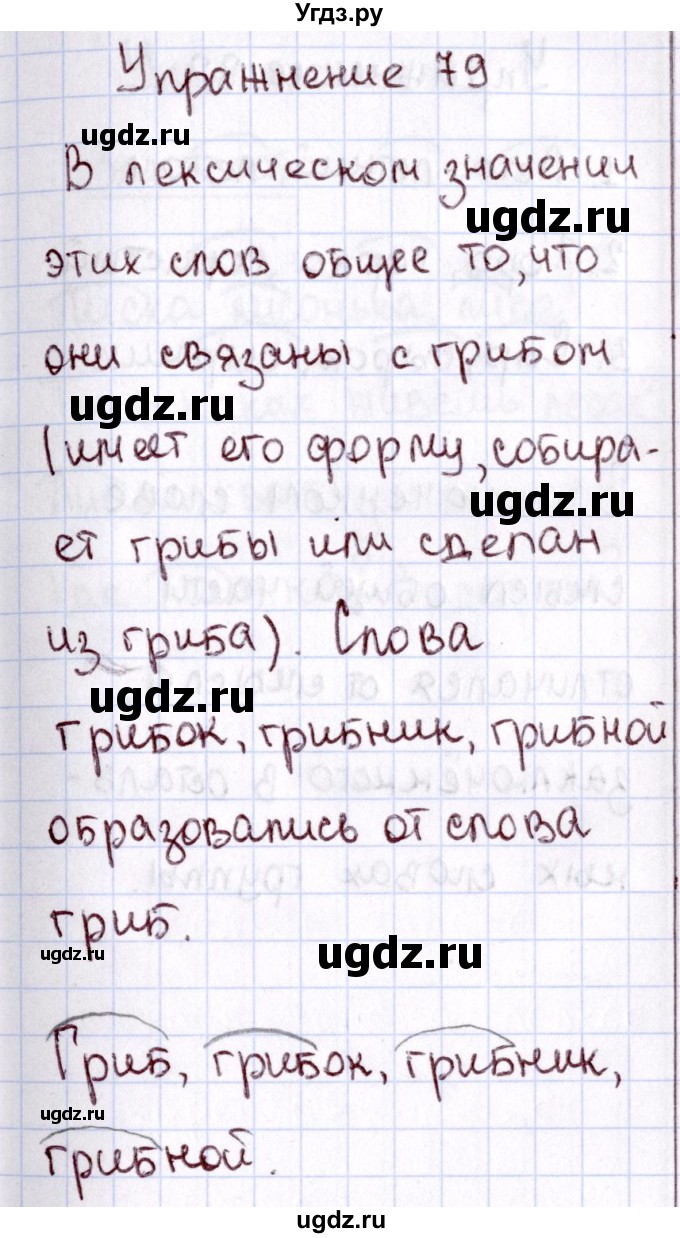 Угдз.ру
Упражнение 79
ugdz.ru
В лексическом значении
ugdz.ru
этих слов общее то, что
они связаны с грибом
ugdz.ru
(имеет его форму, собира-
ugdz.ru
ет грибы или сделан
из гриба). Слова
ugdz.ru
грибок, грибник, грибной
образовались от слова
гриб.
ugdz.ru
ugdz.ru
Гриб, грибок, грибник,
ugdz.ru
грибной.
ugdz.ru
ugdz.ru